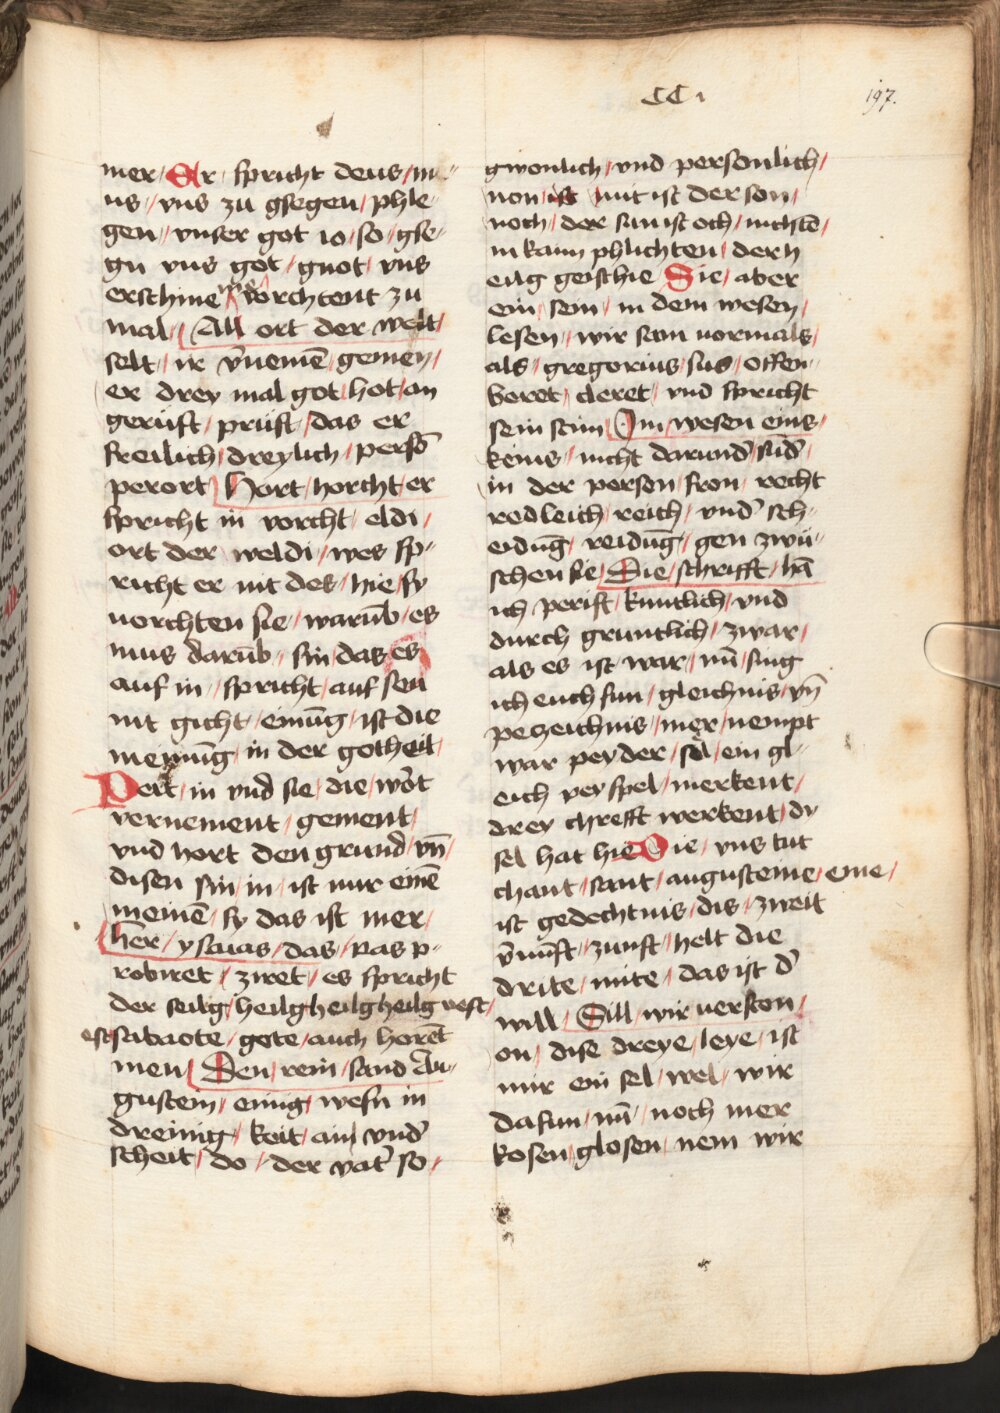 CC1
197.
mer / Er / spricht deus / m
us / vns zu gsegen / phle
gen / vnser got io / so / gse
gn vns got / guot / vns
erschine / vorchtent zu
mal / All ort der welt /
selt / ir v̄nemē / gemen /
er drey mal got / hot / an
geruft / pruft / das er
freilich / dreylich / persō
perort / Hort / horcht / er
spricht in vorcht / eldi /
ort der / weldi / wes sp
richt er nit des / hie / sy
vorchten sie / warūb / es
mus darūb / sin / das es
auf in / spricht / auf sen
nit gicht / einūg / ist die
meinūg / in der gotheit /
Peit / in vnd sie / die / wort
vernement / gement /
vnd hort den grund / vn̄
disen sin / in / ist nur einē
meinē / sy das ist mer /
her / ysaias / das / pas p
robiret / ziret / es spricht
der seilg / heilgheilgheilg vest /
est sabaote / gote / auch horēt
men / Den / rein / sand Au
gustein / einig / wesn in
dreinig / keit / ain vnd
scheit / do / der vat so /
gwonlich / vnd personlich /
non ist / nut ist der son /
noch / der sun ist och / nichtē /
in kain phlichten / der h
eilg geischie Sie / aber
ein / sein / in dem wesen /
lesen / wir san vormals /
als / gregorius / sus / offen
beret / cleret / vnd spricht
sein sinn / Im / wesen eins /
keins / nicht darund / sund /
in der person / fron / recht
redleich / reich / vnd sch
eidūg / reidūg / gen zwu
schen sie / Die / schrifft / hā
ich / perift / kuntlich / vnd
durch gruntlich / zwar /
als es ist war / nū / sing
ich euch sun / gleichnis / vn̄
pezeichnis / mer / nempt
war peyder / sel / ein gl
eich pey spel / merkent /
drey chrefft werkent / dy
sel hat hie Die / vns tut
chant / sant / augusteine / eine /
ist gedechtnis / dis / zweit
v̄nuft / zunft / helt die
drite / mite / das ist d
will / Sill / wir versten /
on / dise dreye / leye / ist
nur ein sel / wel / wir
dasun / nū / noch mer
kosen / glosen / nem wir